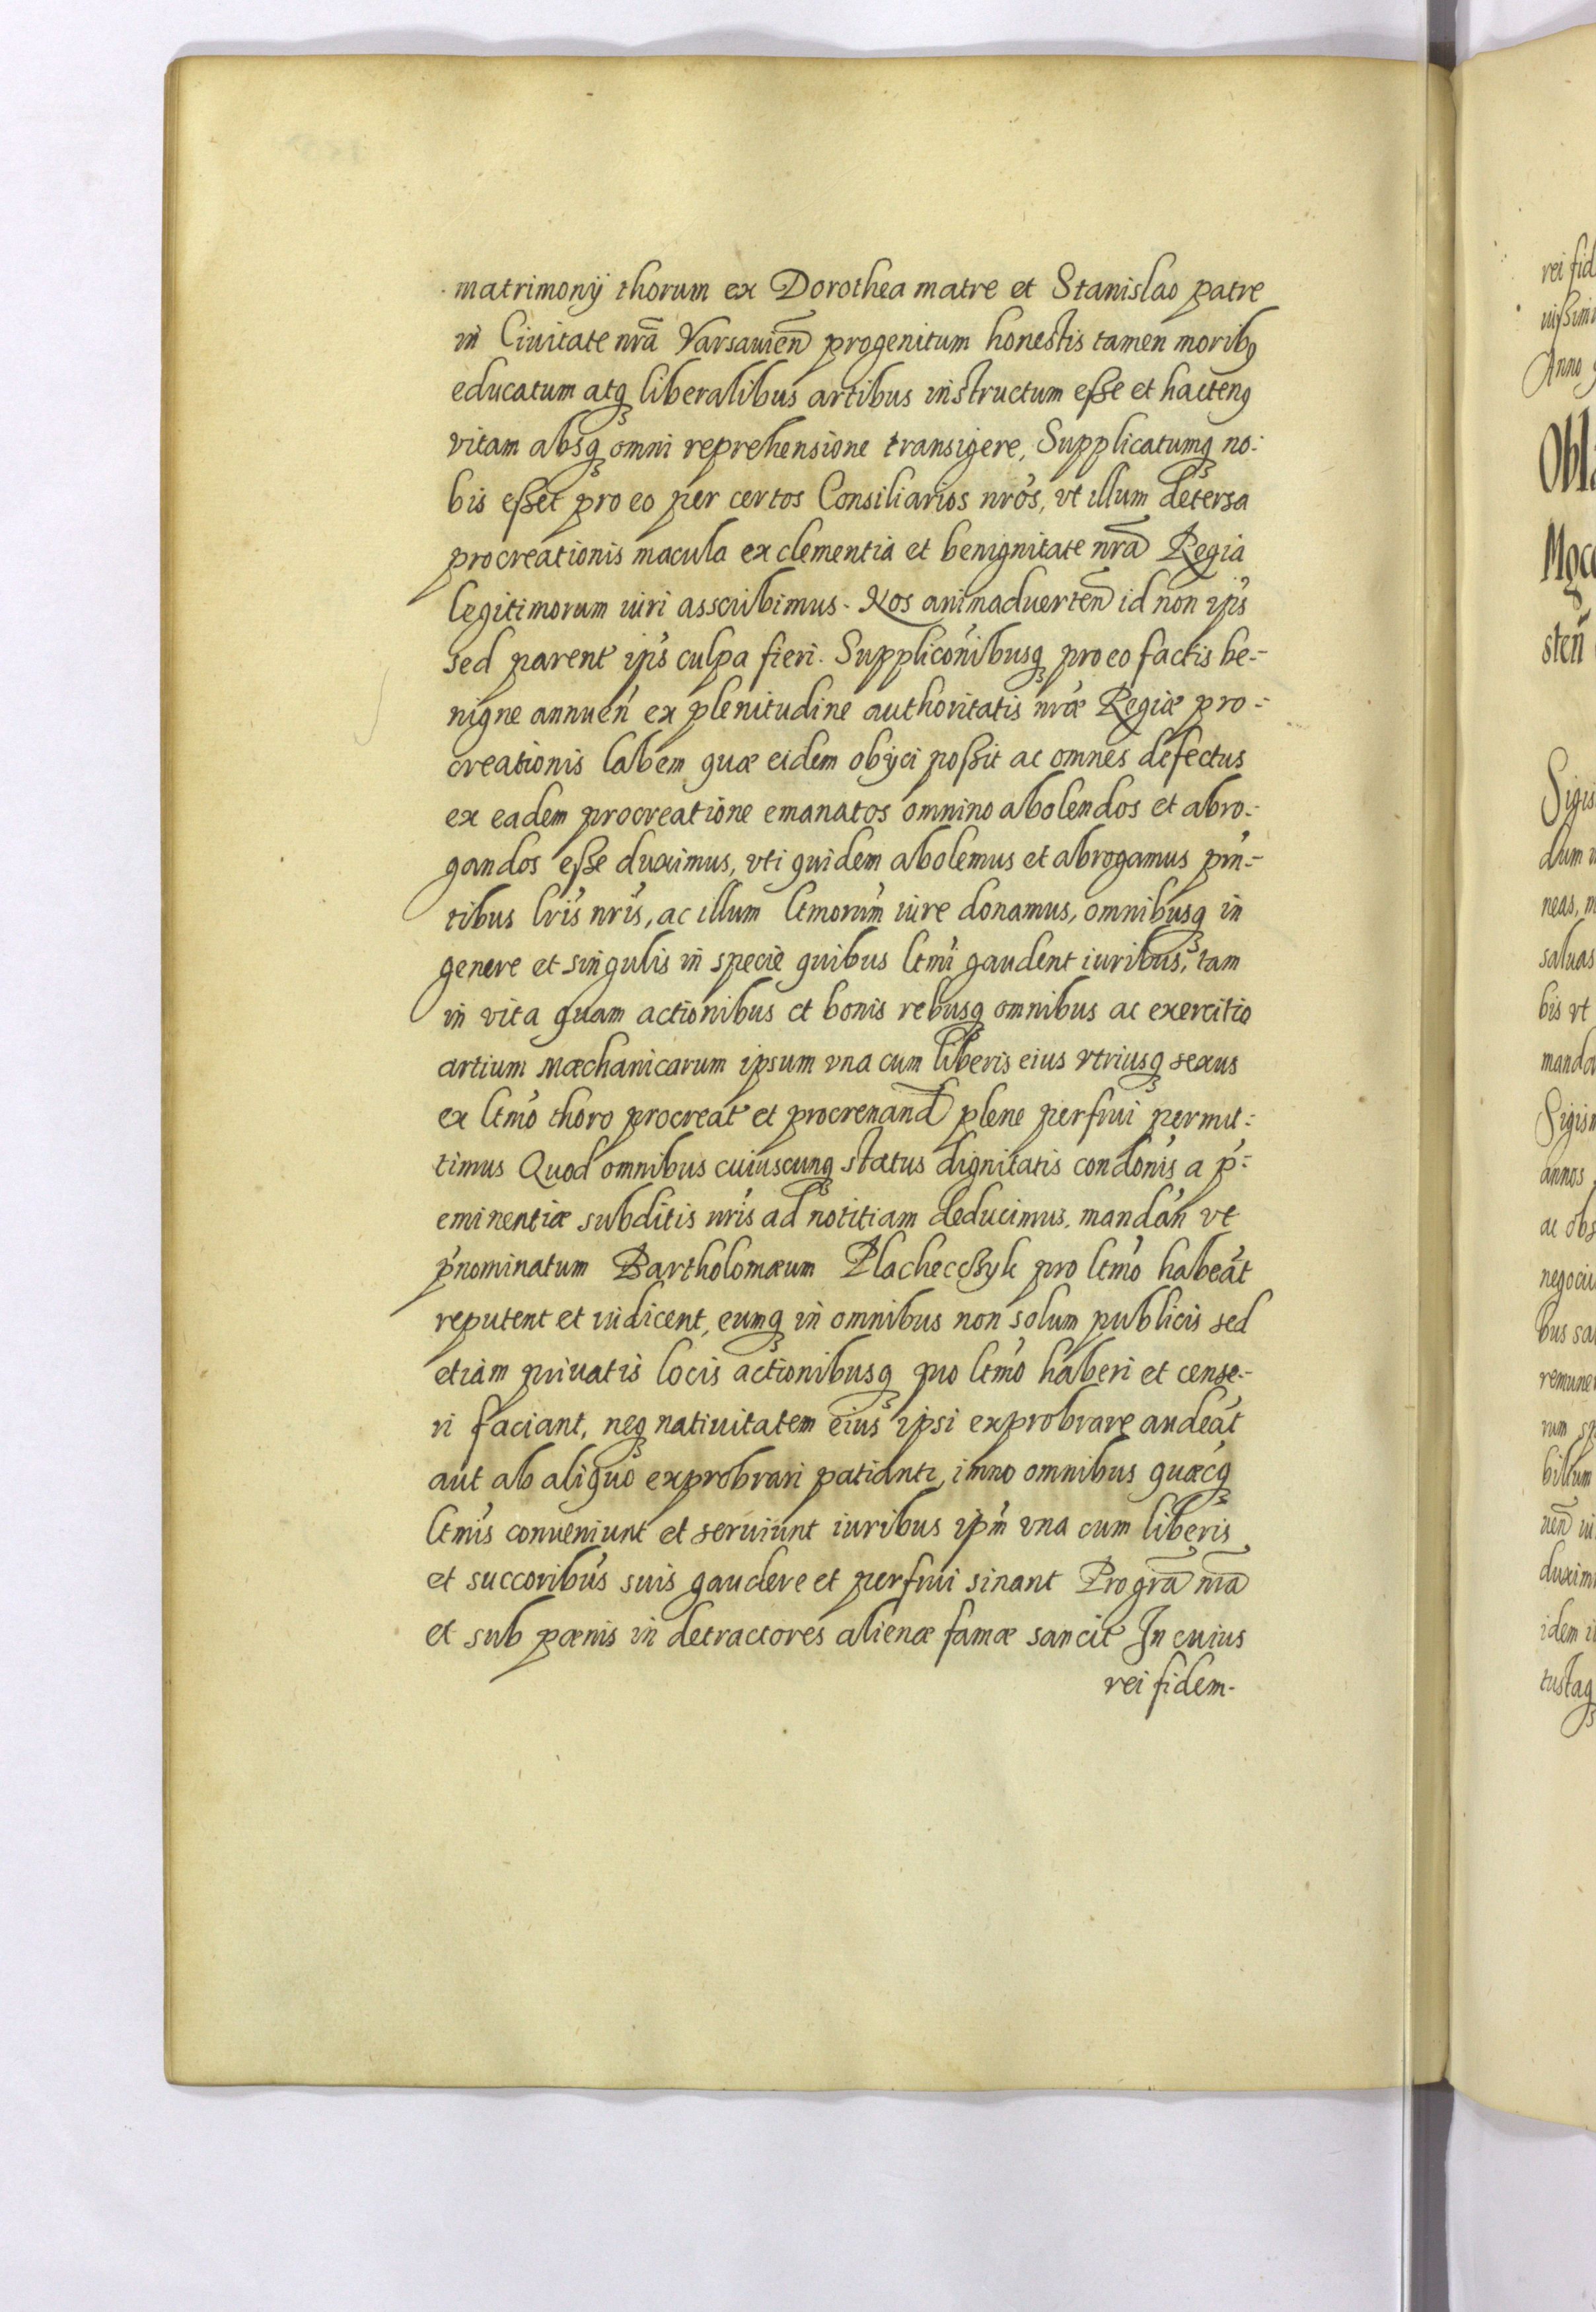 matrimonij thorum ex Dorothea matre et Stanislao patre
in Ciuitate nrã Varsauieñ progenitum honestis tamen moribꝰ
educatum atqꝫ liberalibus artibus instructum eße et hactenꝰ
vitam absqꝫ omni reprehensione transigere, Supplicatumqꝫ no-
bis eßet pro eo per certos Consiliarios nros, vt illum detersa
procreationis macula ex clementia et benignitate nrã Regia
legitimorum iuri asscribimus. Nos animaduerteñ id non ips
sed parent ips culpa fieri. Suppliconibusqꝫ pro eo factis be-
nigne annueń ex plenitudine authoritatis nræ Regiæ pro-
creationis labem quæ eidem obijci poßit ac omnes defectus
ex eadem procreatione emanatos omnino abolendos et abro-
gandos eße duximus, vti quidem abolemus et abrogamus pñ-
tibus lris nris, ac illum ltmorum iure donamus, omnibusqꝫ in
genere et singulis in specie quibus ltmi gaudent iuribus, tam
in vita quam actionibus et bonis rebusqꝫ omnibus ac exercitio
artium mæchanicarum ipsum vna cum liberis eius vtriusqꝫ sexus
ex ltmo thoro procreat et procrenand plene perfrui permit-
timus Quod omnibus cuiuscunqꝫ status dignitatis condonis a p-
eminentiæ subditis nris ad notitiam deducimus. mandań vt
pnominatum Bartholomæum Plachecchyk pro ltmo habeat
reputent et iudicent, eumqꝫ in omnibus non solum publicis sed
etiam priuatis locis actionibusqꝫ pro ltmo haberi et cense-
ri faciant, neqꝫ natiuitatem eius ipsi exprobrare audeat
aut ab aliquo exprobrari patiantr, imno omnibus quæcqꝫ
ltmis conueniunt et seruiunt iuribus ipm vna cum liberis
et succoribus suis gaudere et perfrui sinant Pro grã nrã
et sub pænis in detractores alienæ famæ sancit In cuius
rei fidem-
rei fid
Anno
Obla
sten
Sigis
dum
neas, m
saluas
bis vt
manda
Sigism
annos
ac obs
bus sa
remune
rum sp
bilium
idem